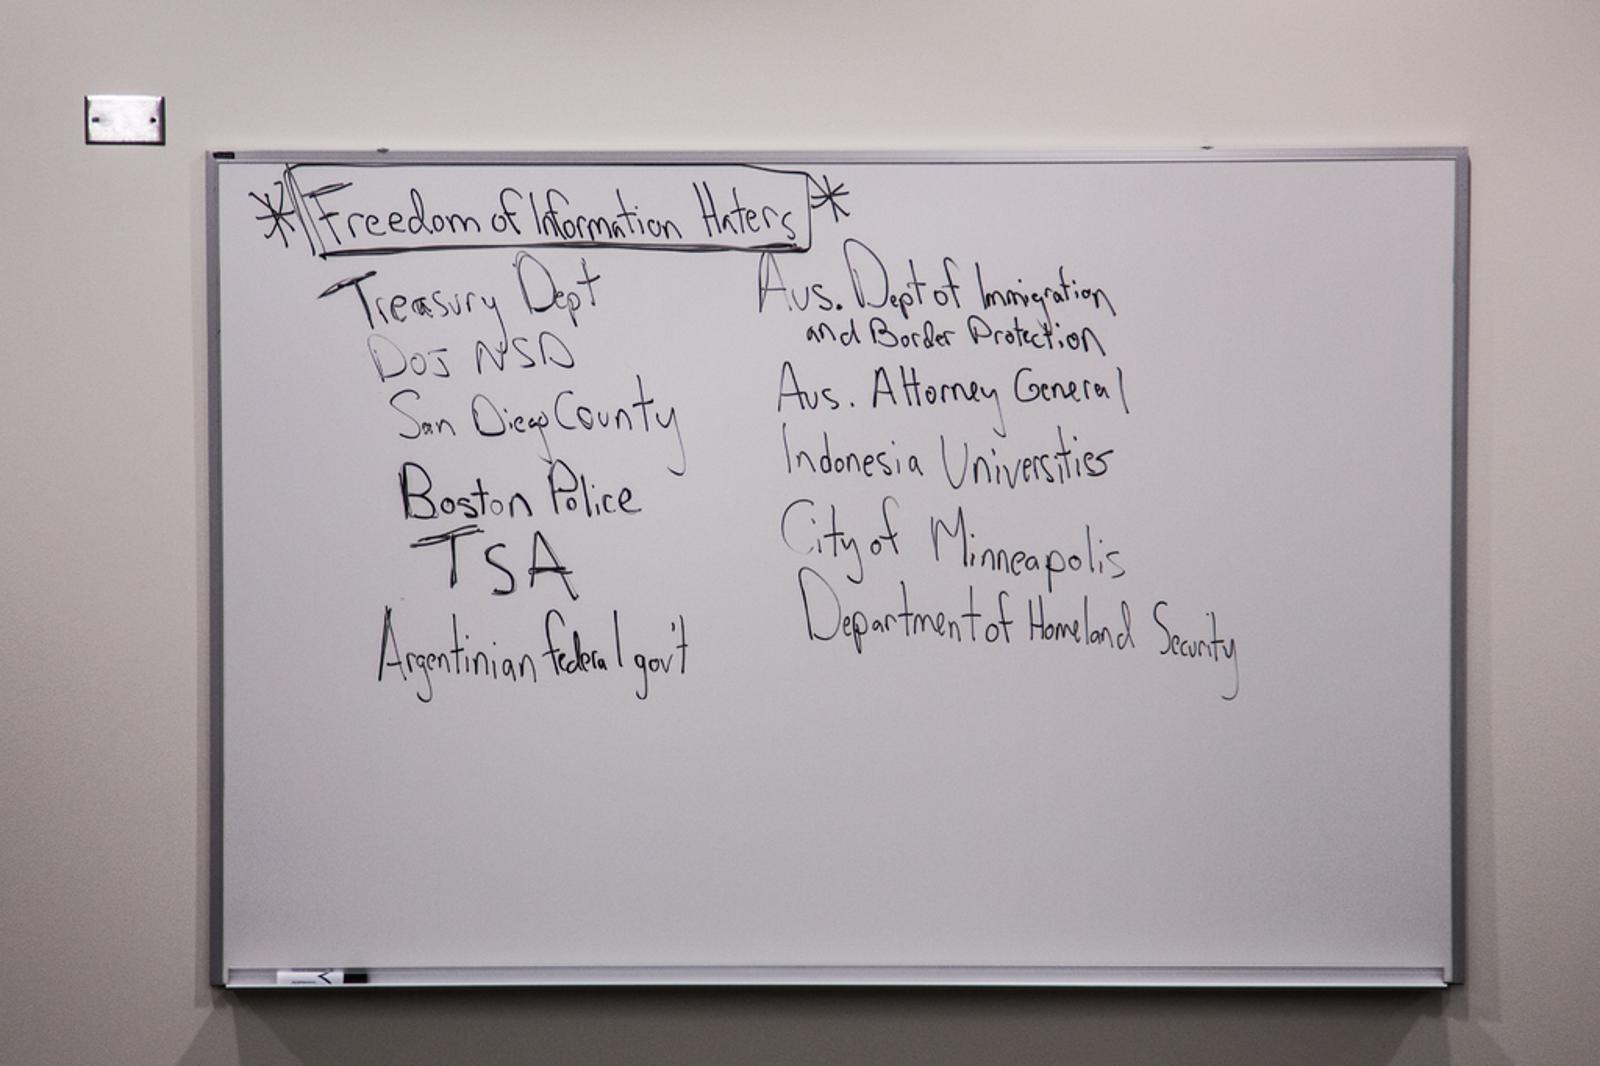 * Freedom of Information Haters *
Treasury Dept
DOJ NSD
San Diego County
Boston Police
TSA
Argentinian federal gov't
Aus. Dept of Immigration
and Border Protection
Aus. Attorney General
Indonesia Universities
City of Minneapolis
Department of Homeland Security